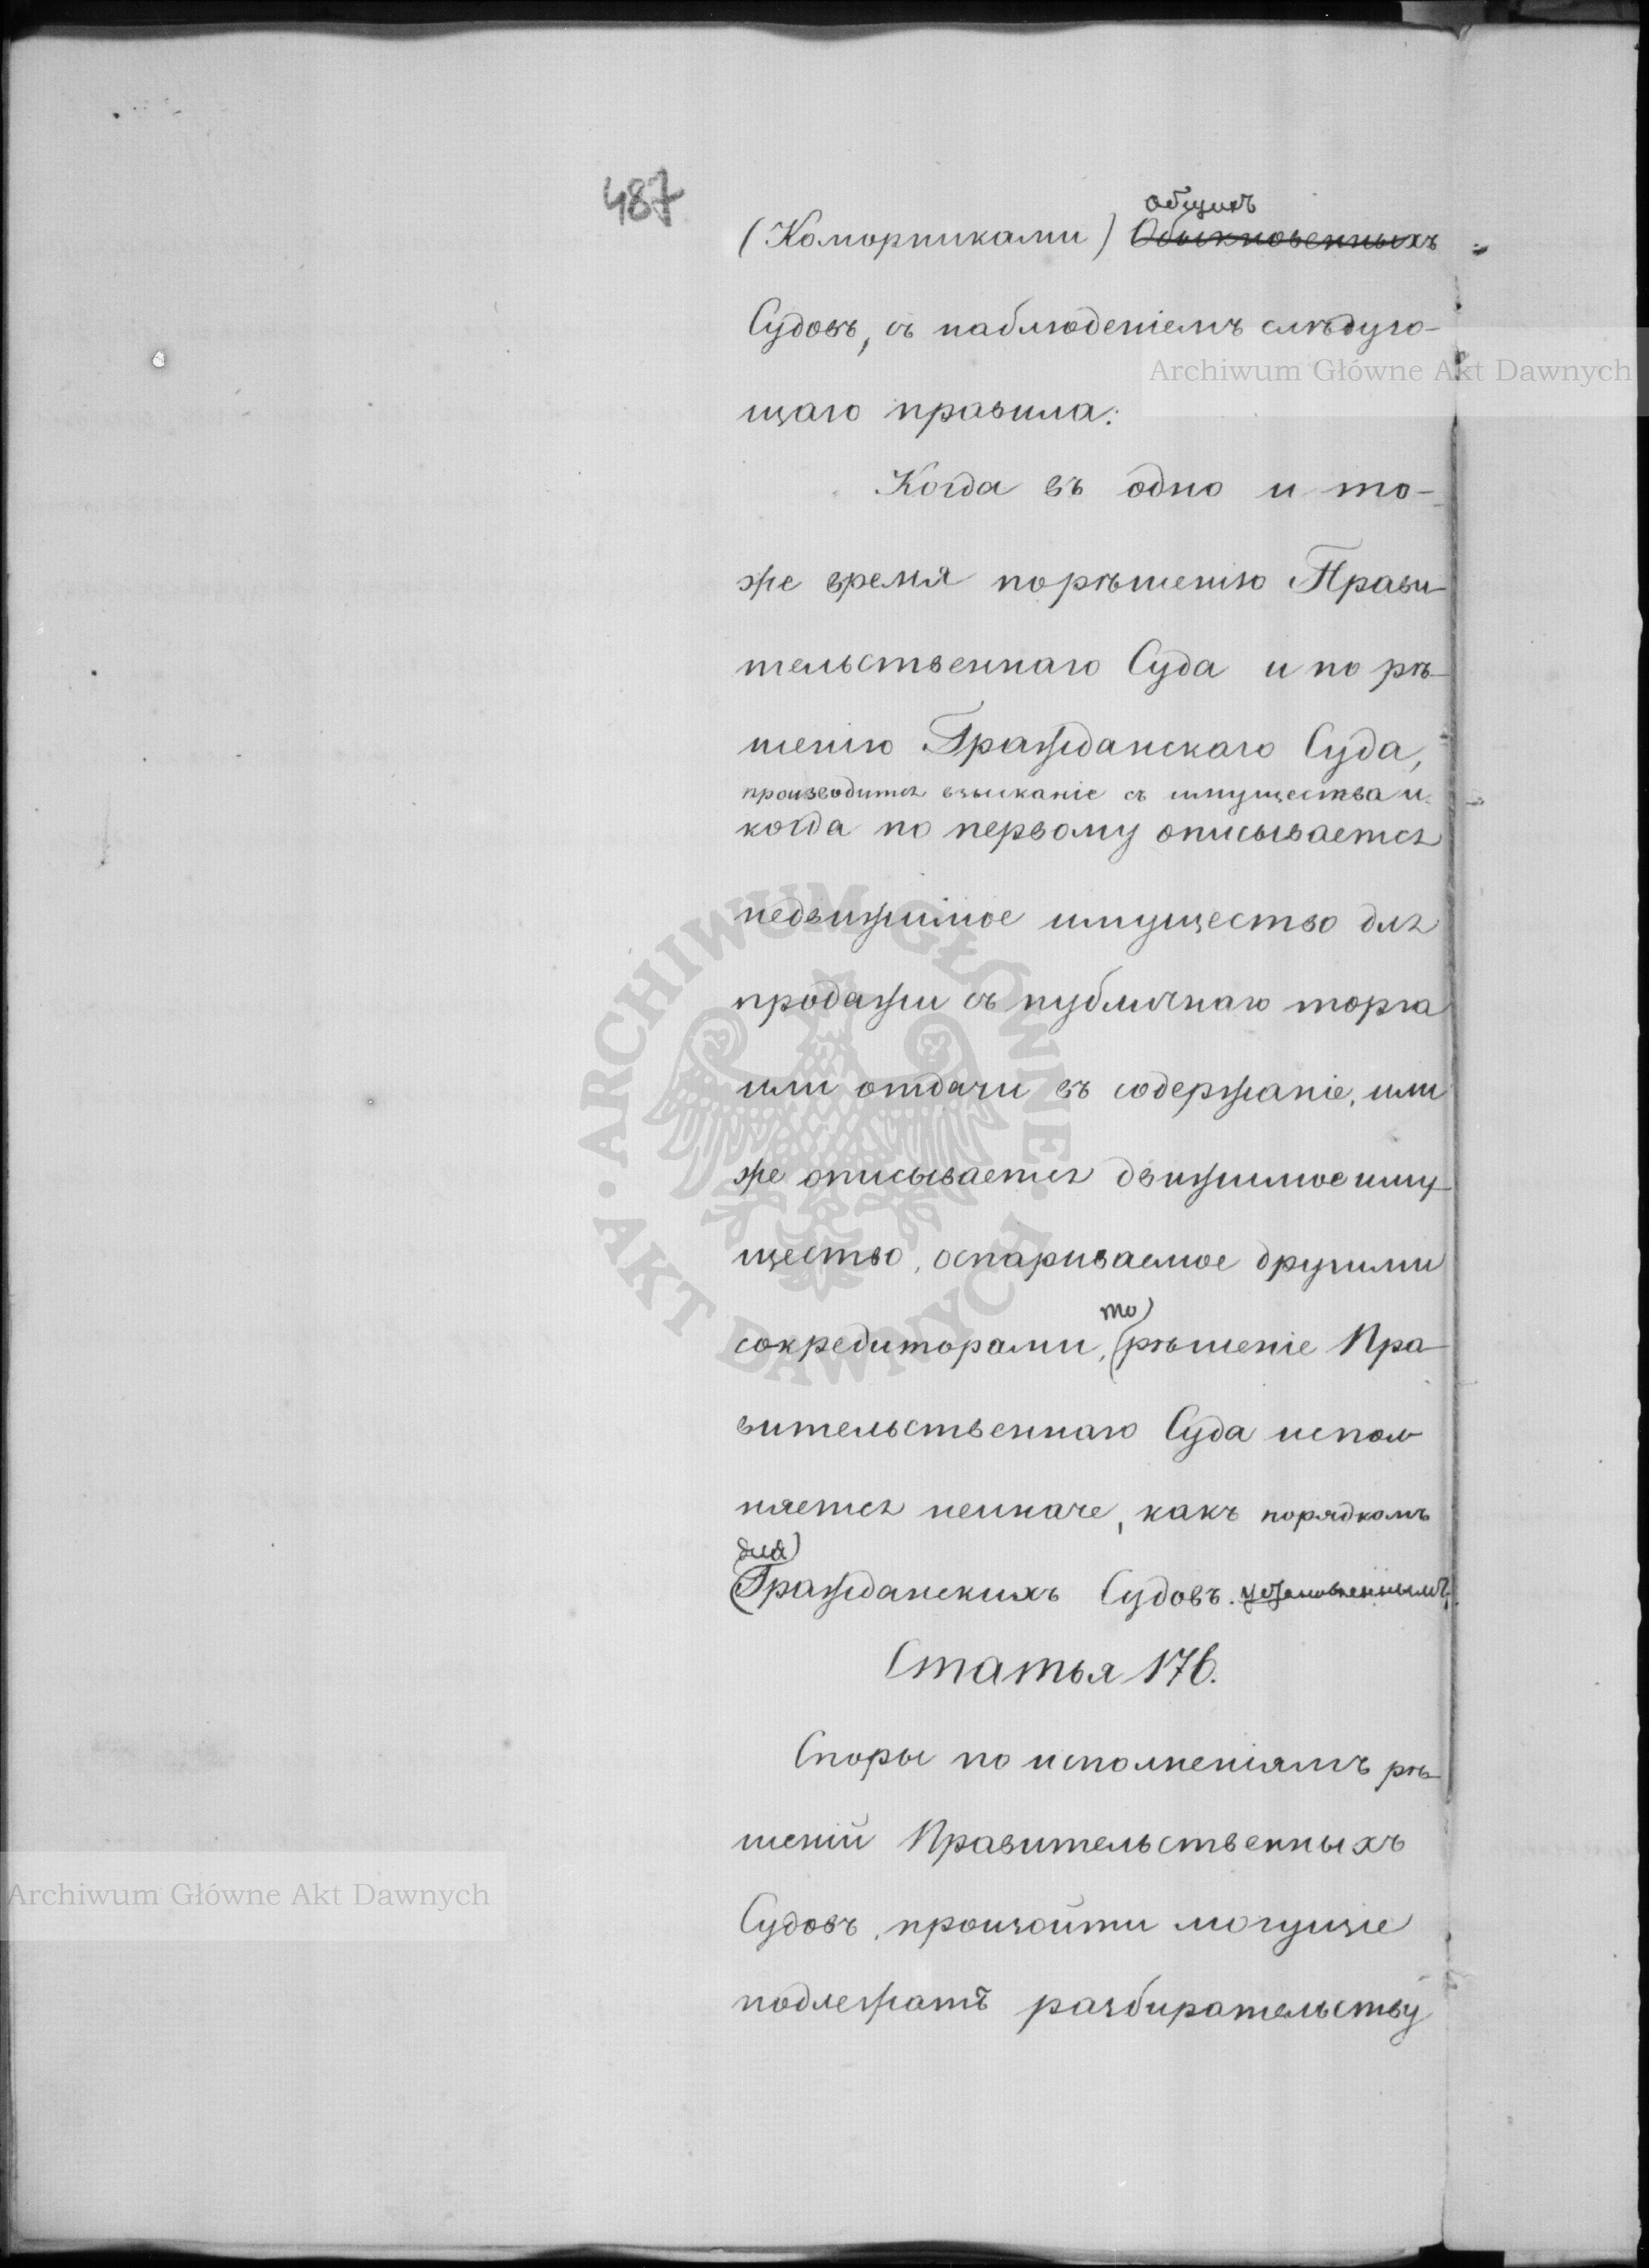 487
общихъ
(Коморниками) Обыкновенныхъ
Судовъ, съ наблюденіемъ слѣдую-
Archiwum Główne Akt Dawnych
щаго правила:
Когда въ одно и то-
же время порѣшенію Прави-
тельственнаго Суда и по рѣ-
шенію Гражданскаго Суда,
производится взысканіе съ имущества и
когда по первому описывается
недвижимое имущество для
продажи съ публичнаго торга
или отдачи въ содержаніе, или
же описывается движимое иму-
щество, оспариваемое другими
то
сокредиторами, (рѣшеніе Пра-
вительственнаго Суда испол-
няется неиначе, какъ порядкомъ
для
(Гражданскихъ Судовъ. установленнымъ.
Статья 176.
Споры по исполненіямъ рѣ-
шеній Правительственныхъ
Archiwum Główne Akt Dawnych
Судовъ, произойти могущіе
подлежатъ разбирательству
ARCHIWUM GŁÓWNE AKT DAWNYCH